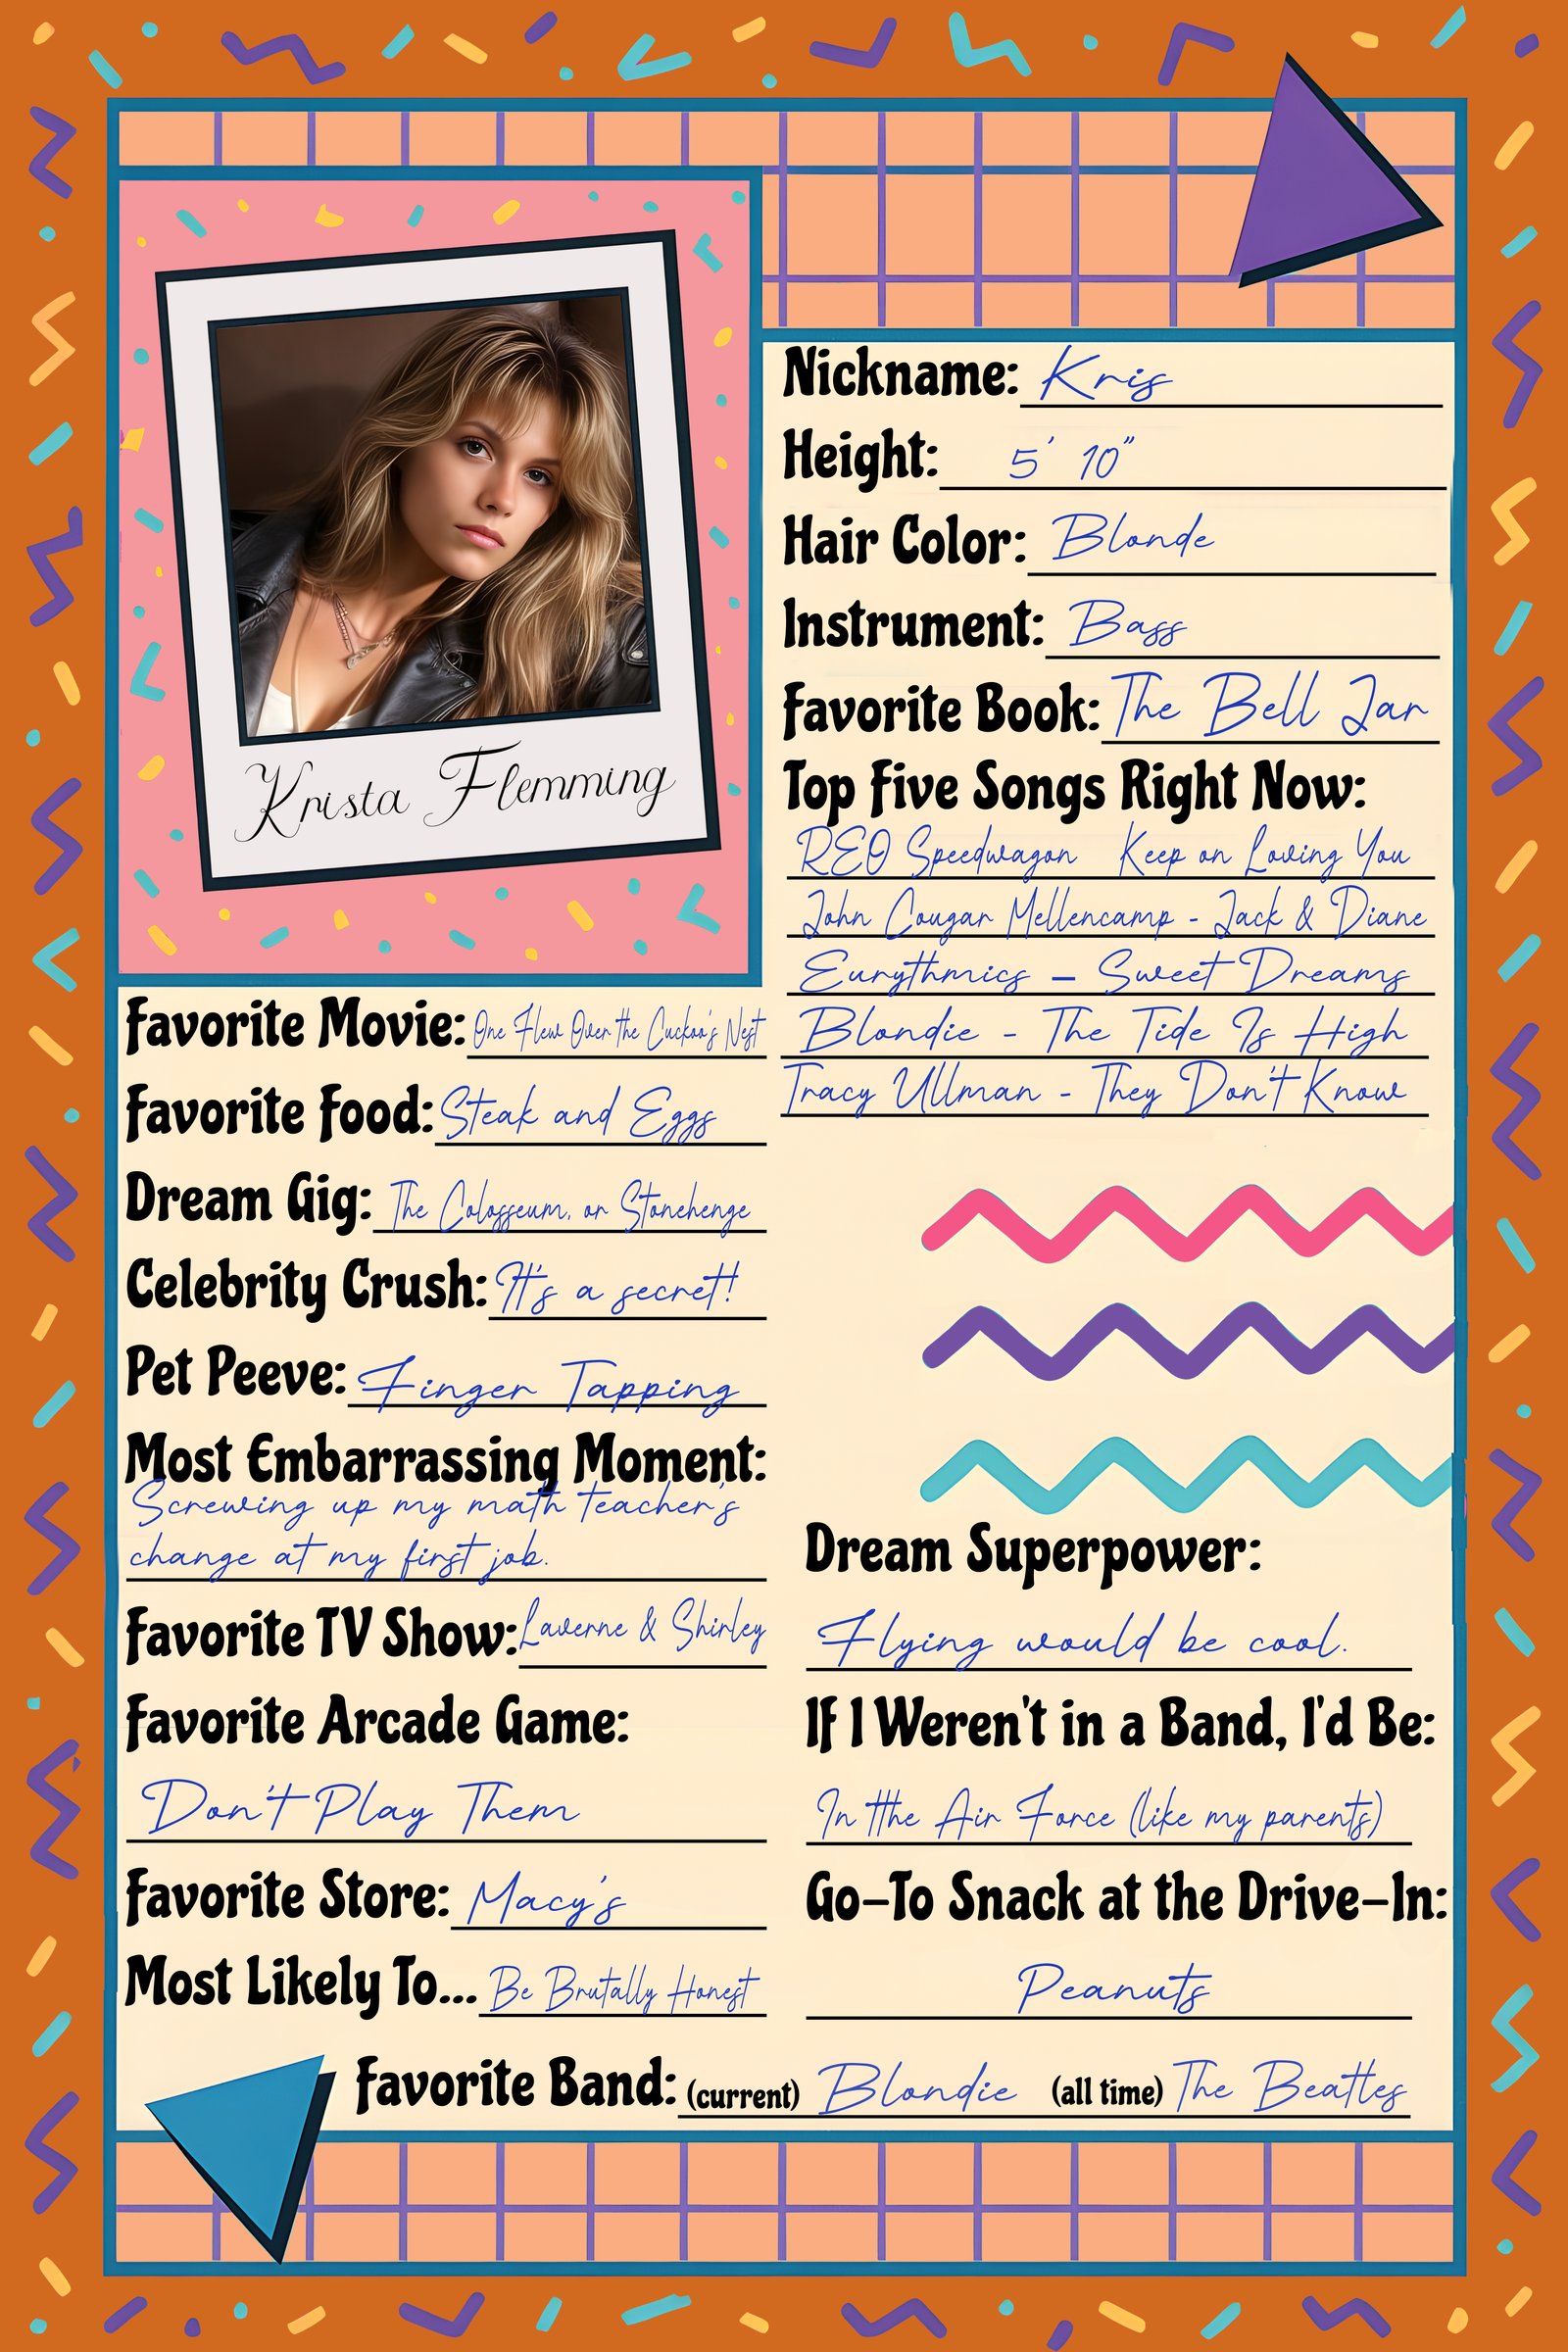 Krista Flemming
Nickname: Kris
Height: 5' 10"
Hair Color: Blonde
Instrument: Bass
Favorite Book: The Bell Jar
Top Five Songs Right Now:
REO Speedwagon Keep on Loving You
John Cougar Mellencamp - Jack & Diane
Eurythmics – Sweet Dreams
Blondie - The Tide Is High
Tracy Ullman - They Don't Know
Favorite Movie: One Flew Over the Cuckoo's Nest
Favorite Food: Steak and Eggs
Dream Gig: The Colosseum, or Stonehenge
Celebrity Crush: It's a secret!
Pet Peeve: Finger Tapping
Most Embarrassing Moment:
Screwing up my math teacher's
change at my first job.
Favorite TV Show: Laverne & Shirley
Favorite Arcade Game:
Don't Play Them
Favorite Store: Macy's
Most Likely To... Be Brutally Honest
Dream Superpower:
Flying would be cool.
If I Weren't in a Band, I'd Be:
In tthe Air Force (like my parents)
Go-To Snack at the Drive-In:
Peanuts
Favorite Band: (current) Blondie (all time) The Beatles